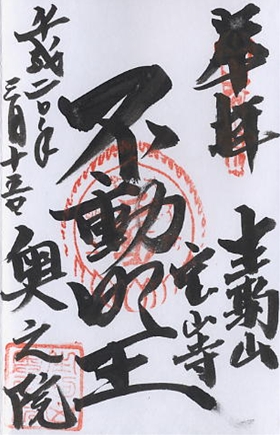 奉拝
生駒山
宝山寺
不動明王
平成二〇年
三月十五日
奥之院